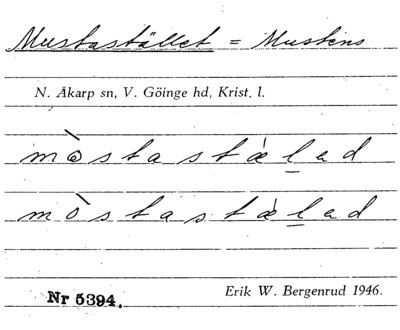 Mustastället = Mustens
N. Åkarp sn, V. Göinge hd, Krist. l.
mò̀stastæ̀l̲ad
mòstastæ̀l̲ad
Nr 5394. Erik W. Bergenrud 1946.